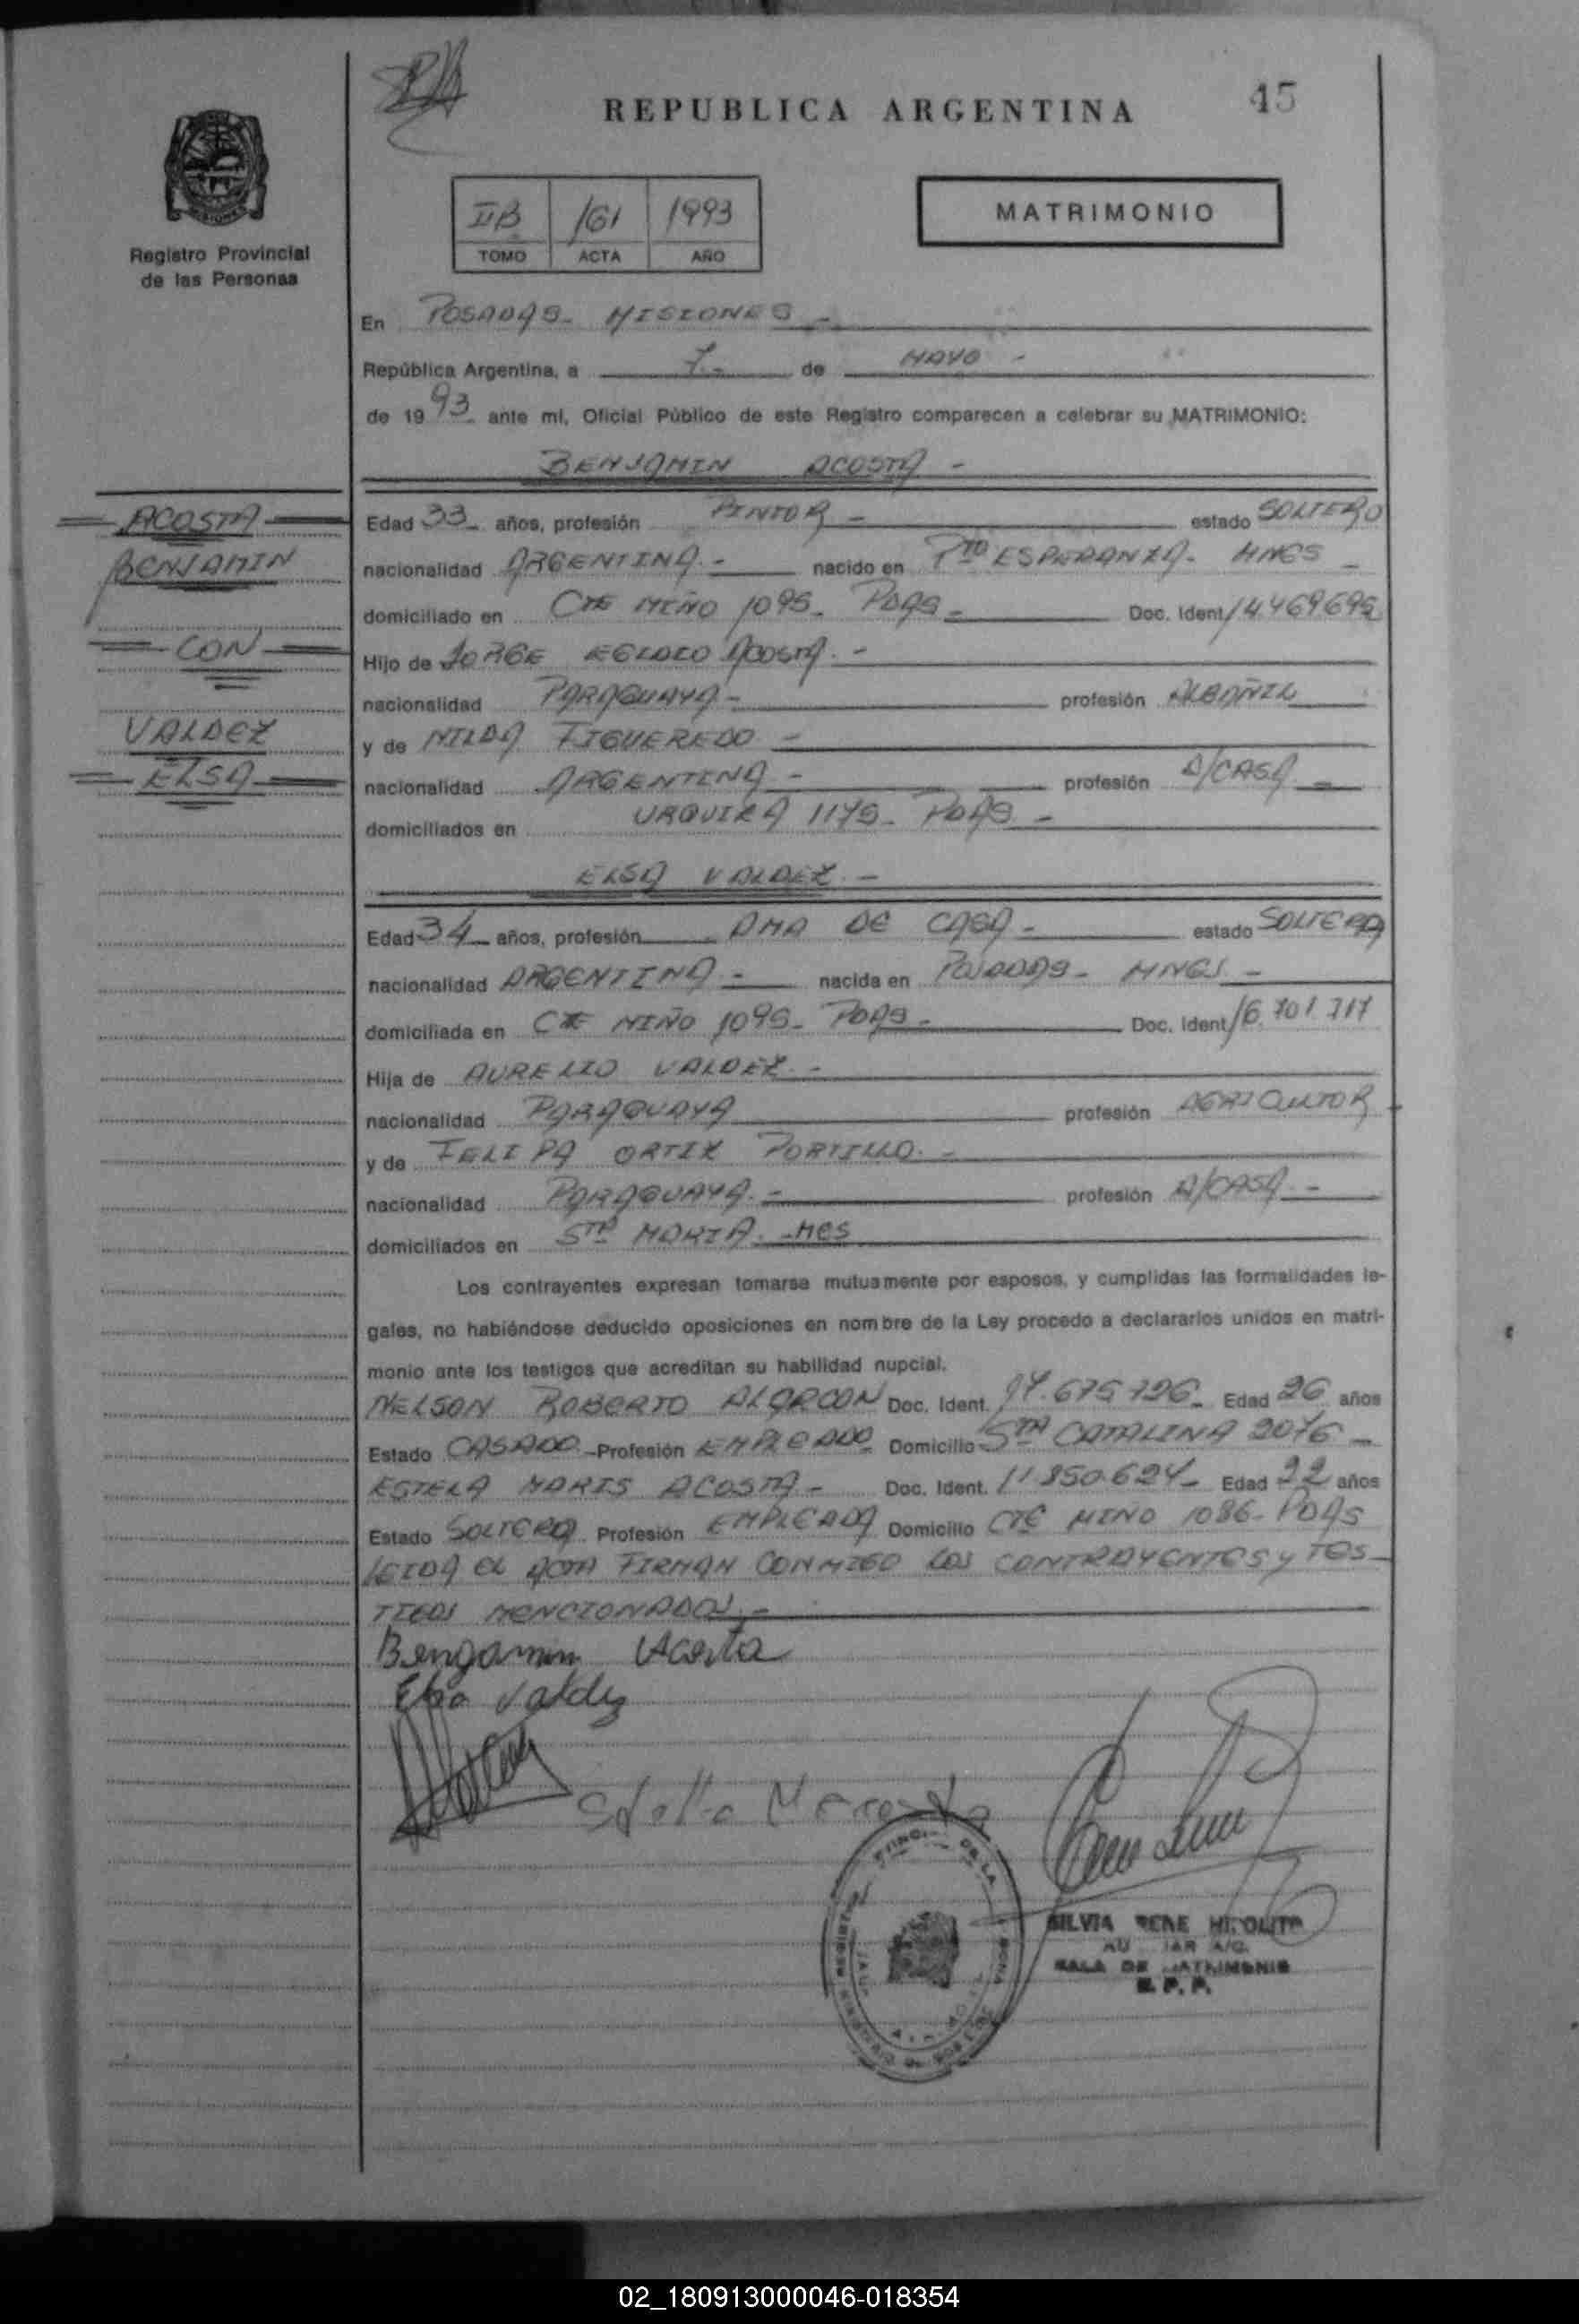 45
REPUBLICA ARGENTINA
IIB 161 1993
TOMO ACTA AÑO
MATRIMONIO
Registro Provincial
de las Personas
En POSADAS - MISIONES -
República Argentina, a 7.- de MAYO -
de 1993 ante mi, Oficial Público de este Registro comparecen a celebrar su MATRIMONIO:
BENJAMIN ACOSTA -
ACOSTA
BENJAMIN
CON
VALDEZ
ELSA
Edad 33 años, profesión PINTOR - estado SOLTERO
nacionalidad ARGENTINA.- nacido en PTO ESPERANZA - MNES -
domiciliado en CTE MIÑO 1095 - PDAS - Doc. Ident. 14.469.695
Hijo de JORGE EGIDIO ACOSTA. -
nacionalidad PARAGUAYA - profesión ALBAÑIL
y de NILDA FIGUEREDO -
nacionalidad ARGENTINA - profesión A/CASA -
domiciliados en URQUIZA 1175 - PDAS -
ELSA VALDEZ -
Edad 34 años, profesión AMA DE CASA - estado SOLTERA
nacionalidad ARGENTINA - nacida en POSADAS - MNES -
domiciliada en CTE MIÑO 1095 - PDAS - Doc. Ident. 16.701.717
Hija de AURELIO VALDEZ -
nacionalidad PARAGUAYA profesión AGRICULTOR
y de FELIPA ORTIZ PORTILLO. -
nacionalidad PARAGUAYA. - profesión A/CASA -
domiciliados en STA MARIA. - MES
Los contrayentes expresan tomarse mutuamente por esposos, y cumplidas las formalidades le-
gales, no habiéndose deducido oposiciones en nombre de la Ley procedo a declararlos unidos en matri-
monio ante los testigos que acreditan su habilidad nupcial.
NELSON ROBERTO ALARCON Doc. Ident. 17.675.726 Edad 26 años
Estado CASADO - Profesión EMPLEADO Domicilio STA CATALINA 2076 -
ESTELA MARIS ACOSTA - Doc. Ident. 11.850.624 Edad 22 años
Estado SOLTERA Profesión EMPLEADA Domicilio CTE MIÑO 1086 - PDAS
LEIDA EL ACTA FIRMAN CONMIGO LOS CONTRAYENTES y TES-
TIGOS MENCIONADOS. -
Bengamin Acosta
Elsa Valdez
SILVIA RENE HIPOLITO
SALA DE MATRIMONIO
R. P. P.
02_180913000046-018354